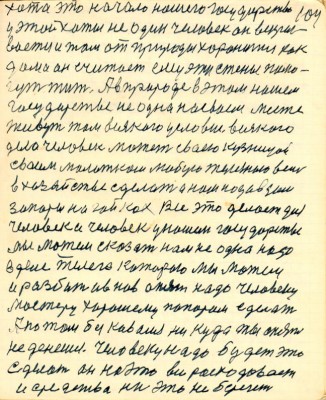 хата это начало нашего государства 104
у этой хаты не один человек он вкули
вается и там от природы хорониться как
дома он считает ему эти стены помо
гут жить. А в природе в этом нашем
государстве не одна на своем месте
живут там всякого условия всякого
дела человек может своею кузницой
своим молотком любую железную вещь
в хазайстве сделать
запоры на гайках Все это делается для
человека и человек у нашем государстве
мы можем сказать нам не одна надо
в деле телега которою мы можем
и разбить а в нов опять надо человеку
мастеру хорошему топором сделать
А потом бу коваля никуда ты опять
не денешся. Человеку надо будет это
сделать он на это все расходовает
и средства ни это не берегет